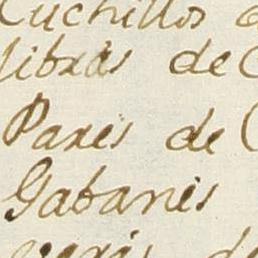 Cuchillos
libras de
Pares de
Gabanes